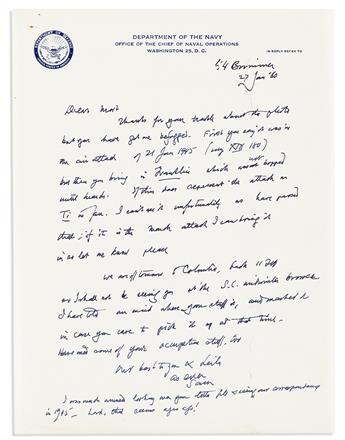 DEPARTMENT OF THE NAVY
OFFICE OF THE CHIEF OF NAVAL OPERATIONS
WASHINGTON 25, D.C.
IN REPLY REFER TO
27 Jan '60
Dear
Thanks for your trouble about the photo
but you have got me befogged. First you say it was in
the air attack of 21 Jan 1945 (my XIII 180)
but then you bring in Franklin which was not bopped
until March. If this does represent the attack on
Ti in Jan. I can use it
that; if it is the March attack I can bring it
in so let me know please
we are off tomorrow to Colombia, back 11 Feb
so I shall not be seeing you at the
I have told our maid where your stuff is, and marked it
in case you care to pick it up at that time.
Have used some of your
Our best to you &
as ever
Sam
I was much amused looking over your letter file & seeing our correspondence
in 1945 - Lord, that seems ages ago!